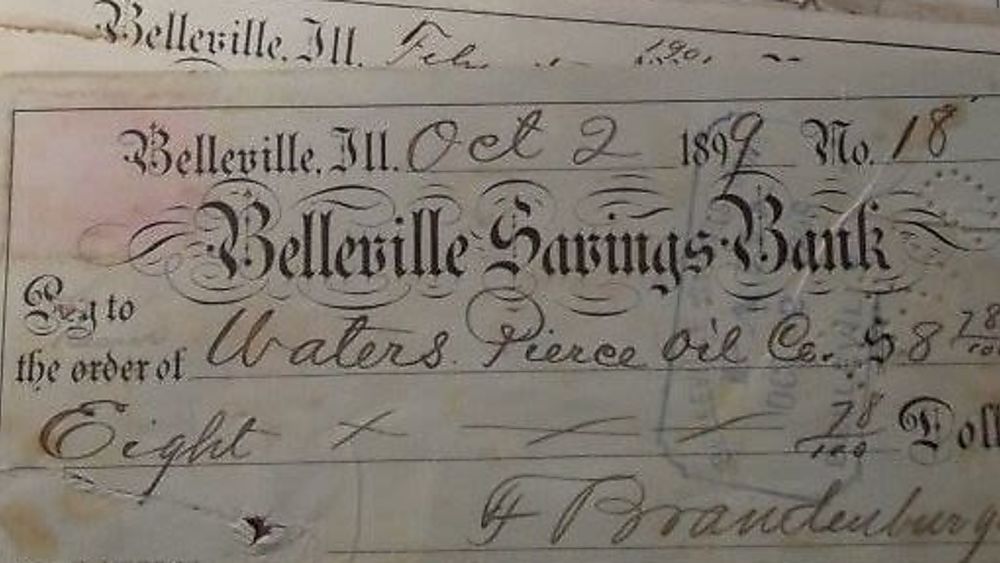 Belleville, Ill. Feb
Belleville, Ill. Oct 2 1899 No. 18
Belleville Savings Bank
Pay to
the order of Waters Pierce Oil Co. $ 8 78/100
Eight 78/100 Doll
F Brandenburg